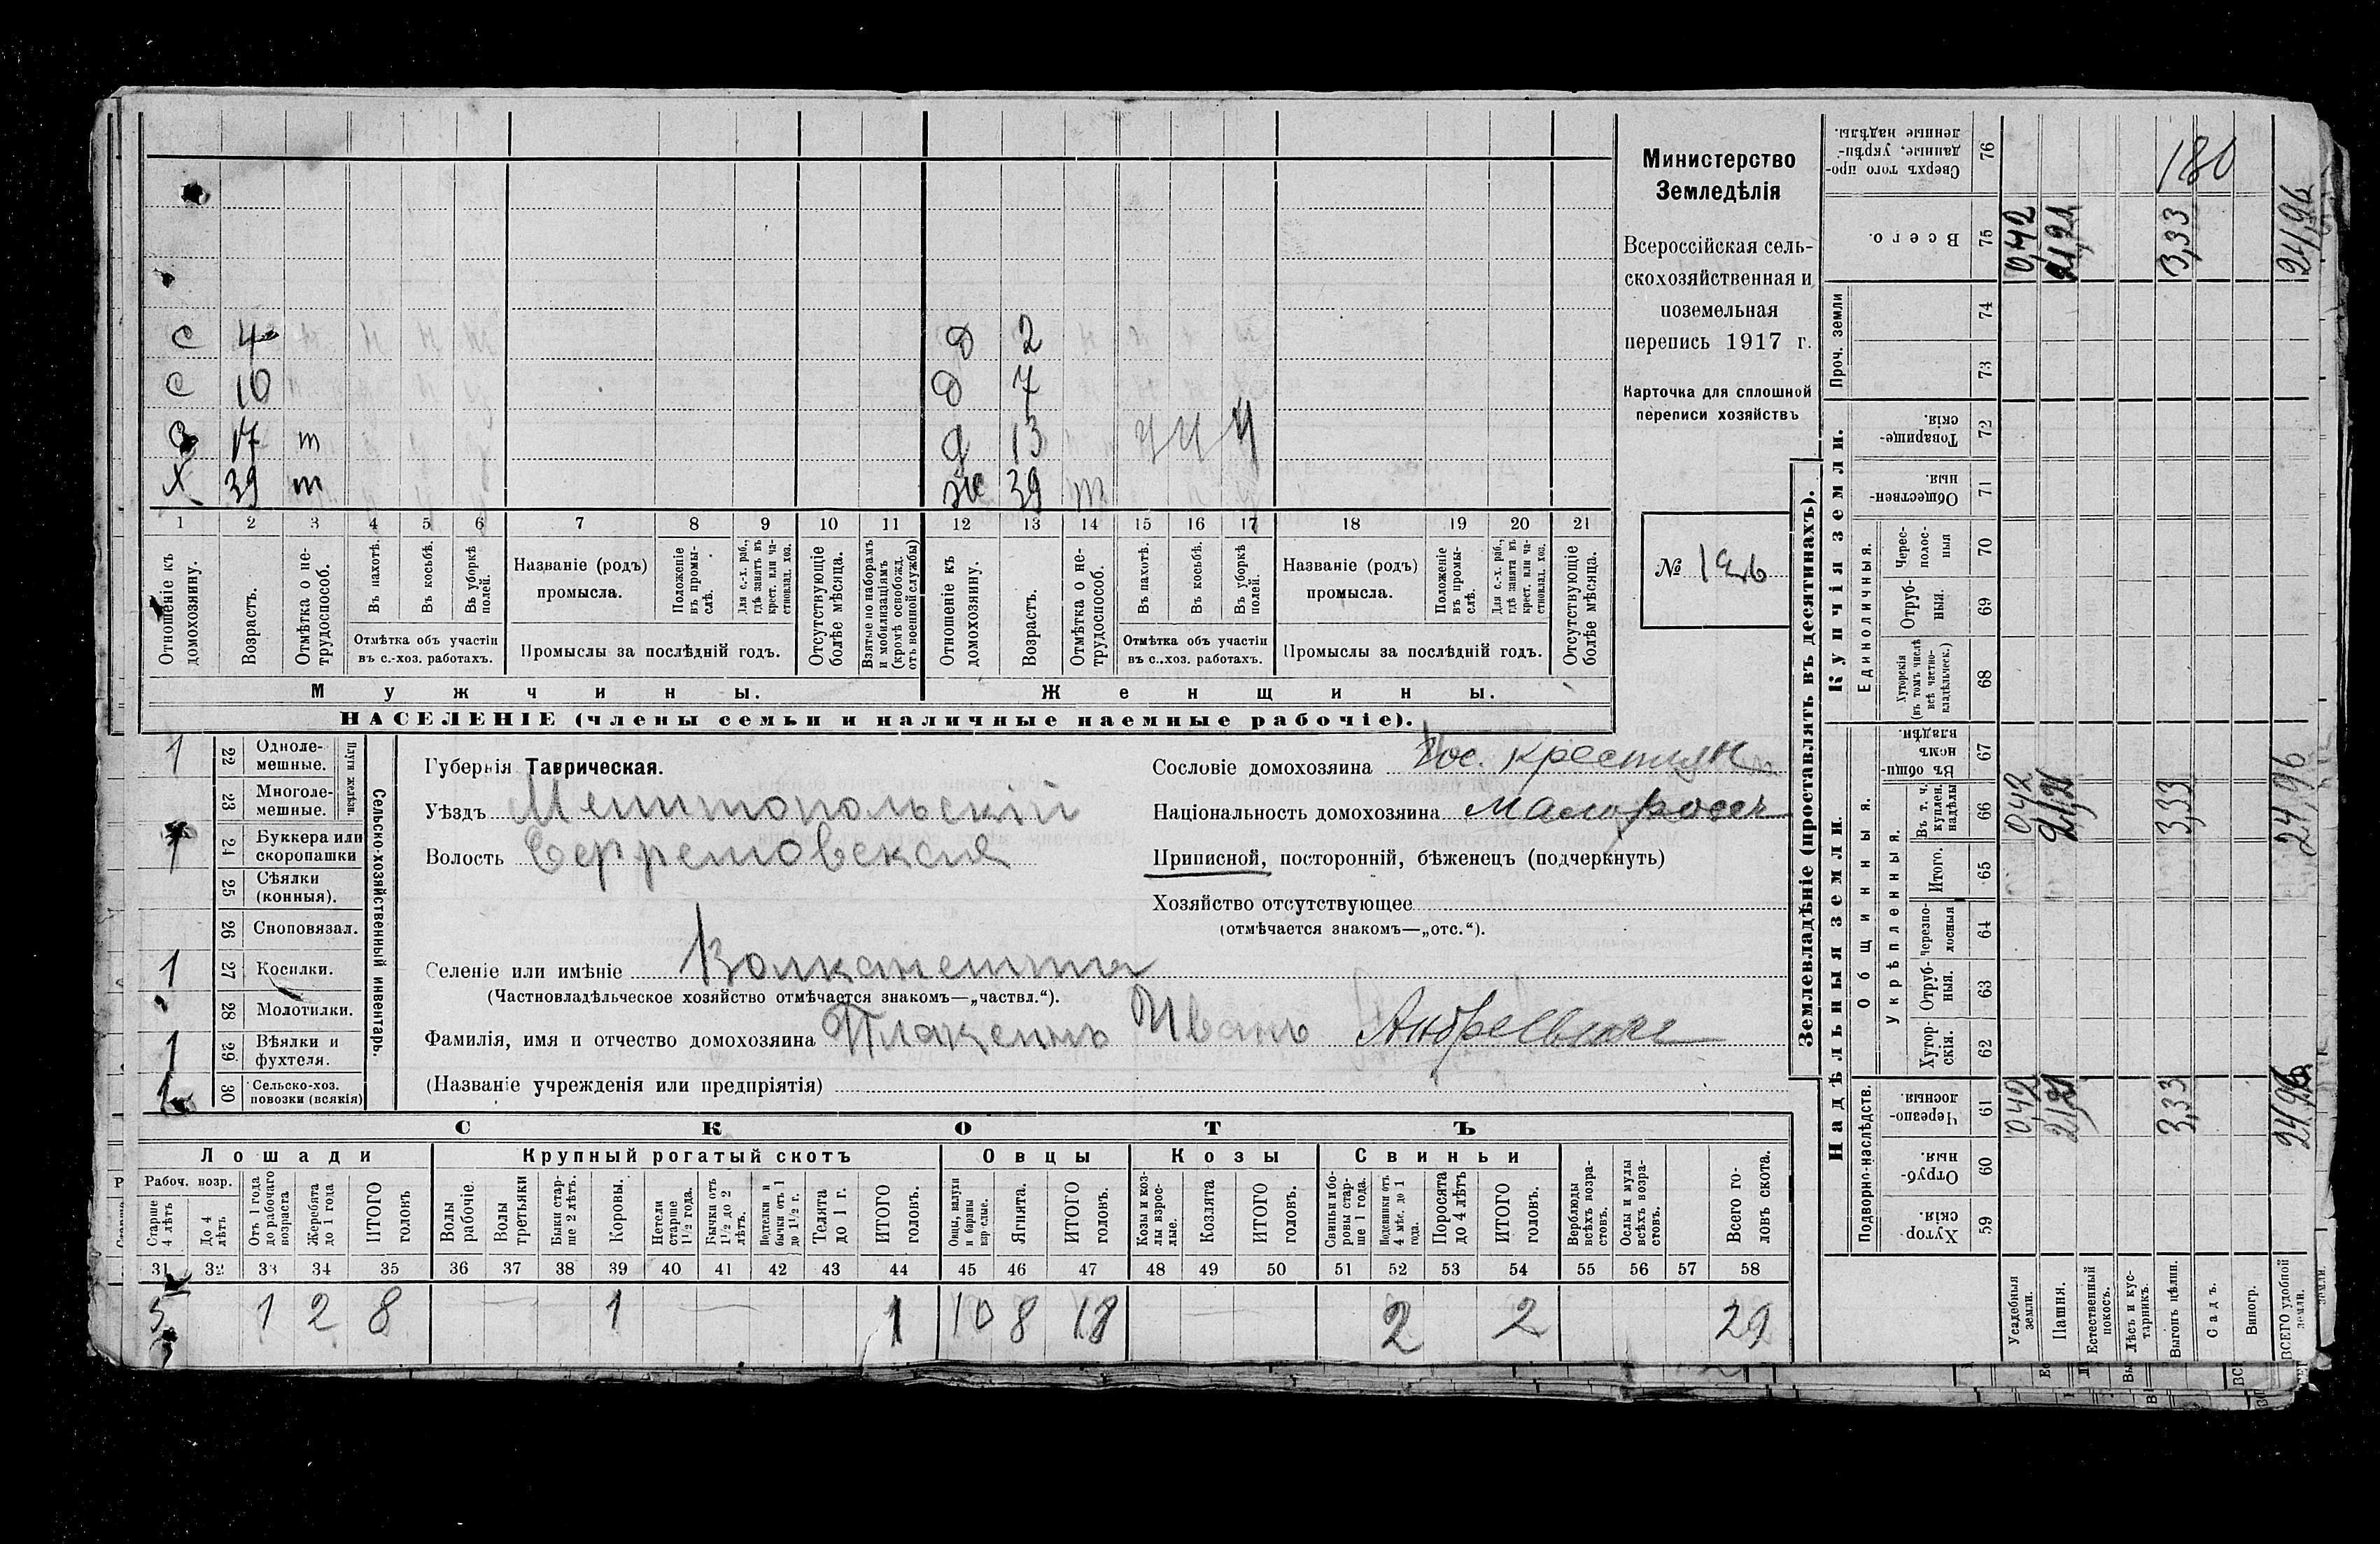 с 4 д 2
с 10 д 7
17 т д 13 ч ч ч
х 39 т ж 39 т
1 2 3 4 5 6 7 8 9 10 11 12 13 14 15 16 17 18 19 20 21
Отношеніе къ домохозяину.
Возрастъ.
Отмѣтка о не-трудоспособ.
Въ пахотѣ.
Въ косьбѣ.
Въ уборкѣ полей.
Отмѣтка объ участіи
въ с.-хоз. работахъ.
Названіе (родъ)
промысла.
Положеніе въ промы-слѣ.
Для с.-х. раб., гдѣ занятъ въ крест. или ча-стновлад. хоз.
Промыслы за послѣдній годъ.
Отсутствующіе болѣе мѣсяца.
Взятые по наборамъ и мобилизаціямъ (кромѣ освобожд. отъ военной службы)
Отношеніе къ домохозяину.
Возрастъ.
Отмѣтка о не-трудоспособ.
Въ пахотѣ.
Въ косьбѣ.
Въ уборкѣ полей.
Отмѣтка объ участіи
въ с.-хоз. работахъ.
Названіе (родъ)
промысла.
Положеніе въ промы-слѣ.
Для с.-х. раб., гдѣ занята въ крест. или ча-стновлад. хоз.
Промыслы за послѣдній годъ.
Отсутствующіе болѣе мѣсяца.
Мужчины. Женщины.
НАСЕЛЕНІЕ (члены семьи и наличные наемные рабочіе).
Министерство
Земледѣлія
Всероссійская сель-
скохозяйственная и
поземельная
перепись 1917 г.
Карточка для сплошной
переписи хозяйствъ
№
Сельско-хозяйственный инвентарь.
Плуги желѣзн.
1 22 Одноле-мешные.
23 Многоле-мешные.
24 Буккера или скоропашки
25 Сѣялки (конныя).
26 Сноповязал.
1 27 Косилки.
28 Молотилки.
1 29 Вѣялки и фухтеля.
30 Сельско-хоз. повозки (всякія)
Губернія Таврическая.
Уѣздъ Мелитопольскій
Волость Ефремовская
Селеніе или имѣніе
(Частновладѣльческое хозяйство отмѣчается знакомъ—„частвл.“).
Фамилія, имя и отчество домохозяина Иванъ Андреевичъ
(Названіе учрежденія или предпріятія)
Сословіе домохозяина Гос. крестьян
Національность домохозяина малороссъ
Приписной, посторонній, бѣженецъ (подчеркнуть)
Хозяйство отсутствующее
(отмѣчается знакомъ—„отс.“).
СКОТЪ
Лошади Крупный рогатый скотъ Овцы Козы Свиньи
Рабоч. возр.
Старше 4 лѣтъ
До 4 лѣтъ
Отъ 1 года до рабочаго возраста
Жеребята до 1 года
ИТОГО головъ
Волы рабочіе.
Волы третьяки
Быки стар-ше 2 лѣтъ.
Коровы.
Нетели старше 1½ года.
Бычки отъ 1½ до 2 лѣтъ.
Подтелки и бычки отъ 1 до 1½ г.
Телята до 1 г.
ИТОГО головъ.
Овцы, валухи и бараны взрослые.
Ягнята.
ИТОГО головъ.
Козы и коз-лы взрос-лые.
Козлята
ИТОГО головъ.
Свиньи и бо-ровы стар-ше 1 года.
Подсвинки отъ 4 мѣс. до 1 года.
Поросята до 4 лѣтъ
ИТОГО головъ.
Верблюды всѣхъ возра-стовъ.
Ослы и мулы всѣхъ возра-стовъ.
Всего го-ловъ скота.
31 32 33 34 35 36 37 38 39 40 41 42 43 44 45 46 47 48 49 50 51 52 53 54 55 56 57 58
5 1 2 8 1 1 10 8 18 2 2 29
Землевладѣніе (проставлять въ десятинахъ).
Надѣльныя земли. Купчія земли. Проч. земли
Подворно-наслѣдств. Общинныя. Единоличныя.
Укрѣпленныя.
Хутор-скія. 59
Отруб-ныя. 60
Черезпо-лосныя. 61
Хутор-скія. 62
Отруб-ныя. 63
Черезпо-лосныя 64
Итого. 65
Въ т. ч. куплен. надѣлы 66
Въ общин-номъ владѣн. 67
Хуторскія (въ томъ числѣ всѣ частно-владѣльческ.) 68
Отруб-ный. 69
Черес-полос-ныя 70
Обществен-ныя. 71
Товарище-скія. 72
73
74
Всего. 75
Сверхъ того про-данные, укрѣп-ленные надѣлы. 76
Усадебныя земли. 0,42 0,42 0,42
Пашня. 21,21 21,21 21,21
Естественный покосъ.
Лѣсъ и кус-тарникъ.
Выгонъ цѣлин. 3,33 3,33 3,33 180
Садъ.
Виногр.
ВСЕГО удобной земли. 24,96 24,96 24,96